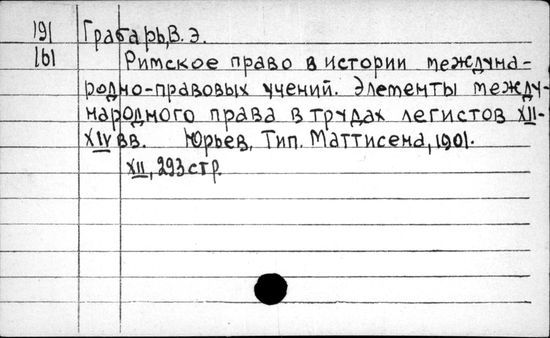 191 Грабарь, В. Э.
161 Римское право в истории междуна-
родно-правовых учений. Элементы между-
народного права в трудах легистов XII-
XIV вв. Юрьев, Тип. Маттисена, 1901.
XII, 293 стр.